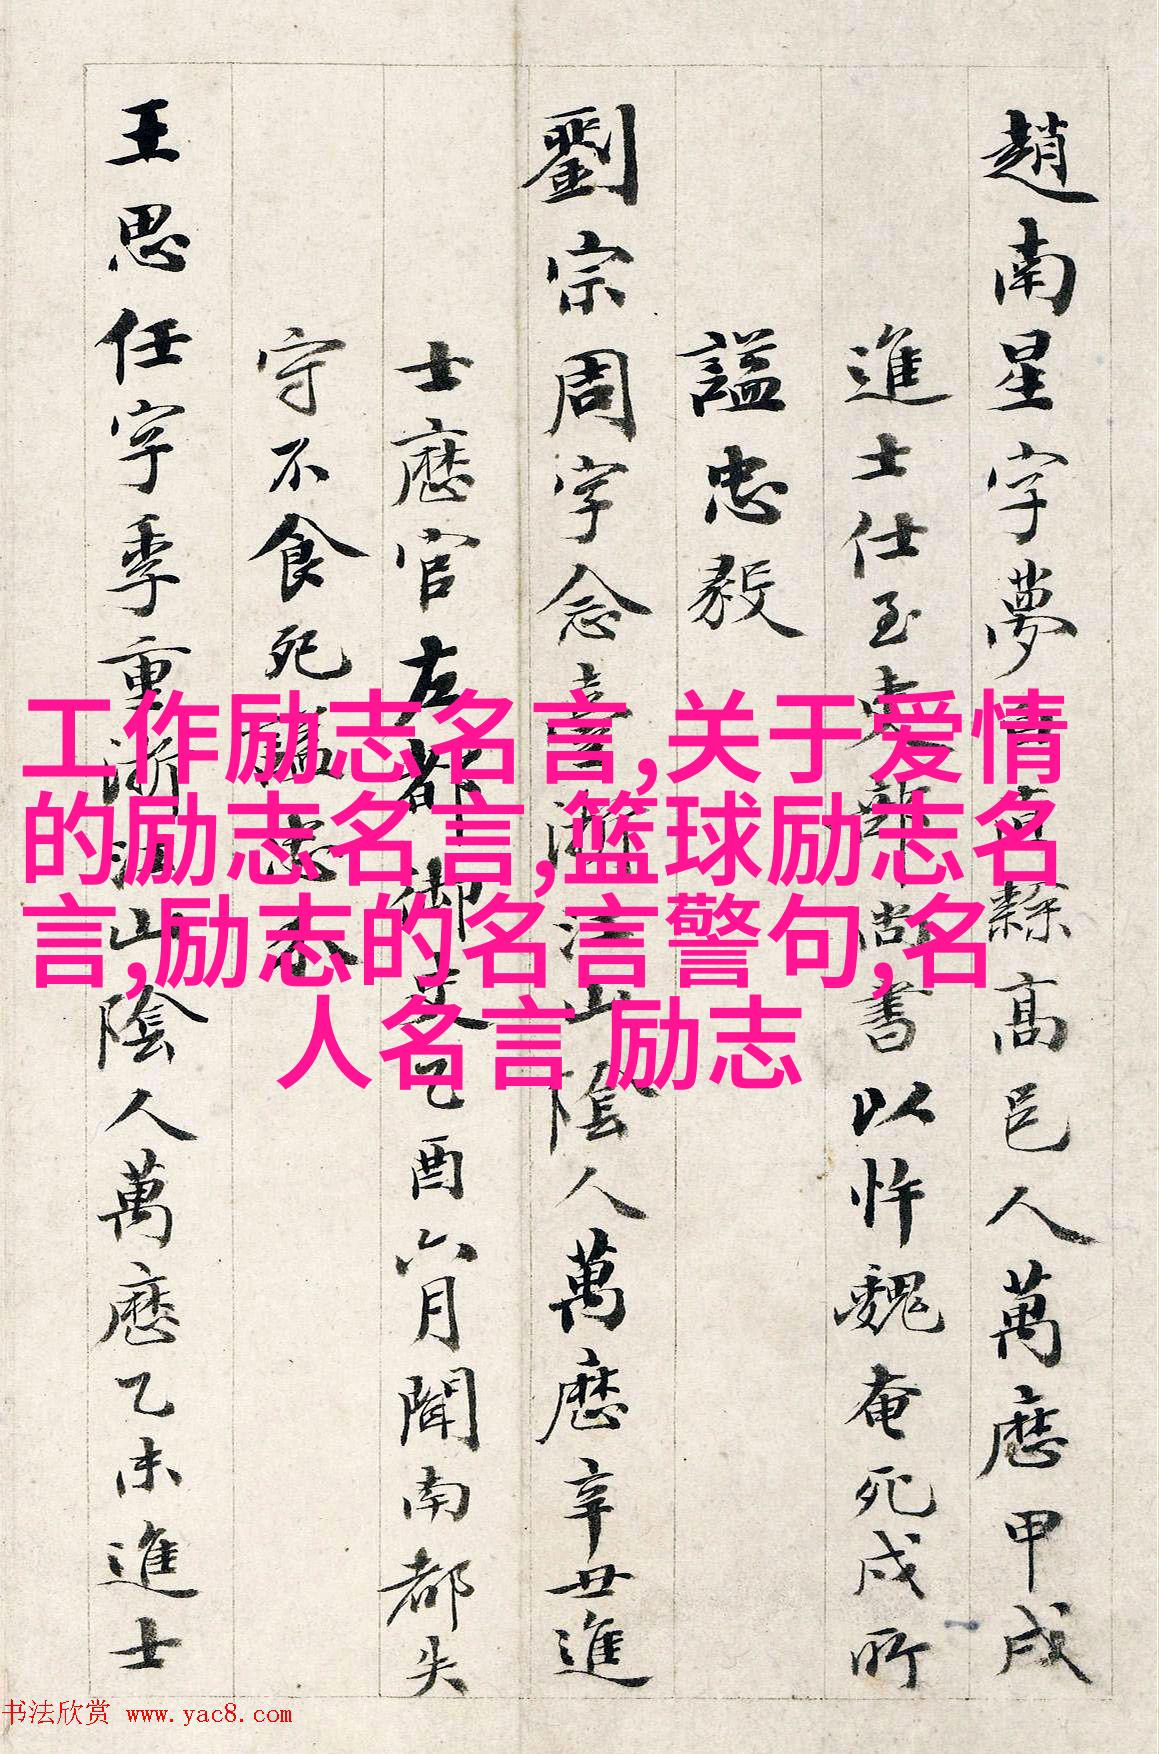 趙南星字夢白直隸高邑人萬曆甲戌
進士仕至吏部尚書以忤魏奄死戍所
諡忠毅
劉宗周字念臺浙江山陰人萬曆辛丑進
士歷官左都御史乙酉六月聞南都失
守不食死諡忠介
王思任字季重浙江山陰人萬曆乙未進士
工作励志名言,关于爱情
的励志名言,篮球励志名
言,励志的名言警句,名
人名言 励志
书法欣赏 www.yac8.com